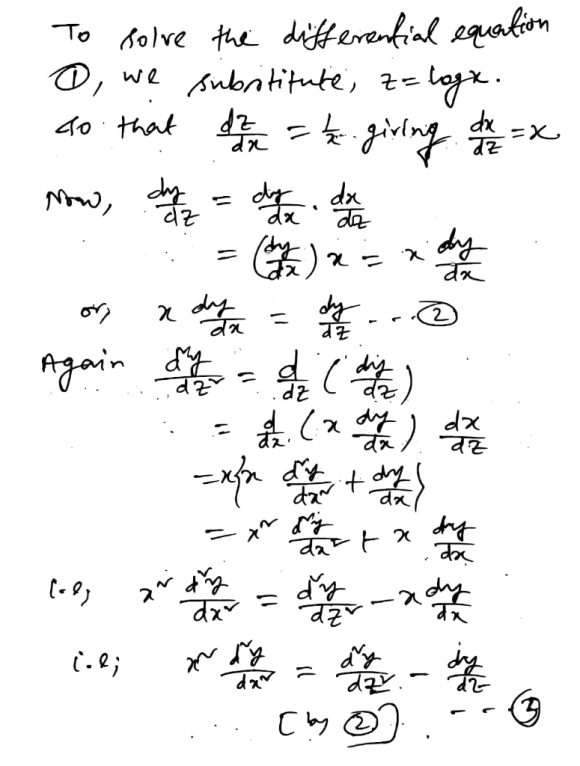 To solve the differential equation
①, we substitute, z = log x.
so that dz/dx = 1/x giving dx/dz = x
Now, dy/dz = dy/dx . dx/dz
= (dy/dx) x = x dy/dx
or, x dy/dx = dy/dz - - - ②
Again d²y/dz² = d/dz (dy/dz)
= d/dx (x dy/dx) dx/dz
= x{x d²y/dx² + dy/dx}
= x² d²y/dx² + x dy/dx
i.e, x² d²y/dx² = d²y/dz² - x dy/dx
i.e; x² d²y/dx² = d²y/dz² - dy/dz
[by ②] - - ③